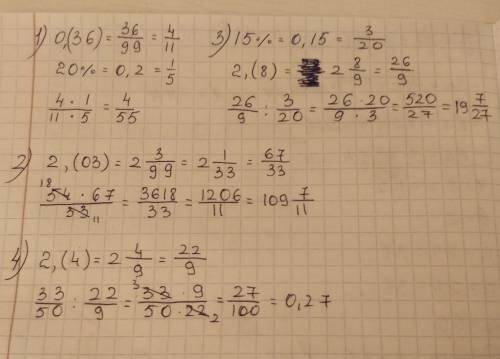 1) 0,(36) = 36/99 = 4/11
20% = 0,2 = 1/5
4 · 1 / 11 · 5 = 4/55
3) 15% = 0,15 = 3/20
2,(8) = 2 8/9 = 26/9
26/9 : 3/20 = 26 · 20 / 9 · 3 = 520/27 = 19 7/27
2) 2,(03) = 2 3/99 = 2 1/33 = 67/33
18 54 · 67 / 33 11 = 3618/33 = 1206/11 = 109 7/11
4) 2,(4) = 2 4/9 = 22/9
33/50 : 22/9 = 3 33 · 9 / 50 · 22 2 = 27/100 = 0,27